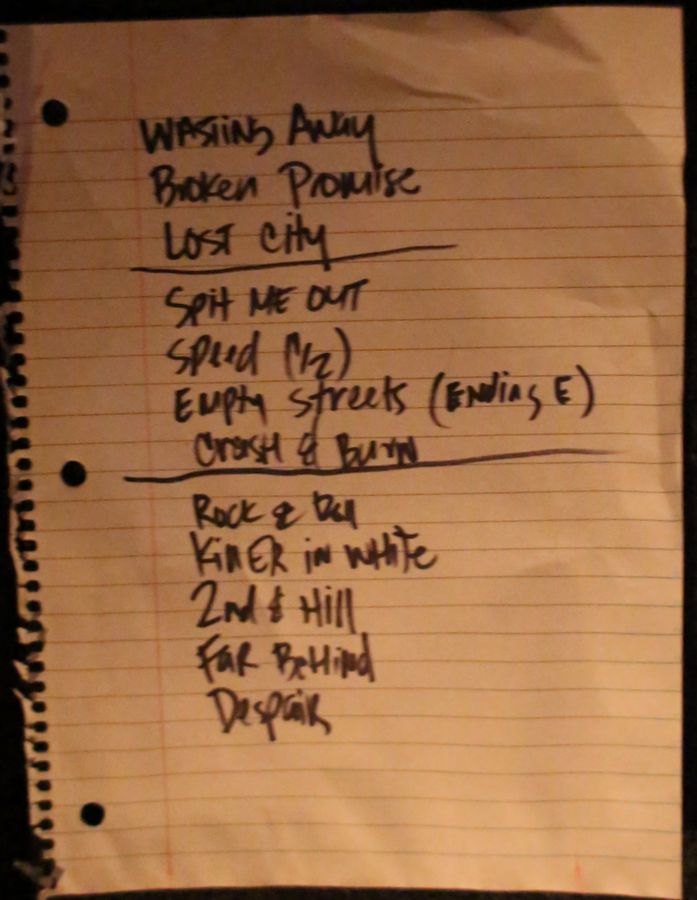 WASTING AWAY
BROKEN PROMISE
LOST CITY
SPIT ME OUT
SPEED (1/2)
EMPTY STREETS (ENDING E)
CRASH & BURN
ROCK &
KILLER IN WHITE
2nd & Hill
FAR BEHIND
DESPAIR